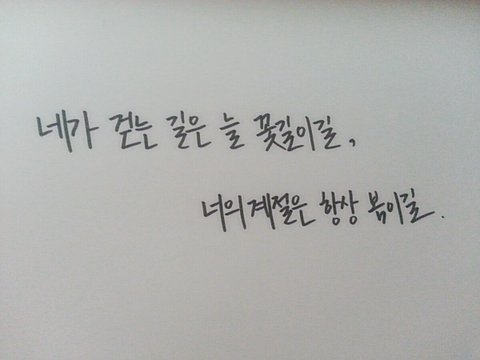 네가 걷는 길은 늘 꽃길이길,
너의 계절은 항상 봄이길.